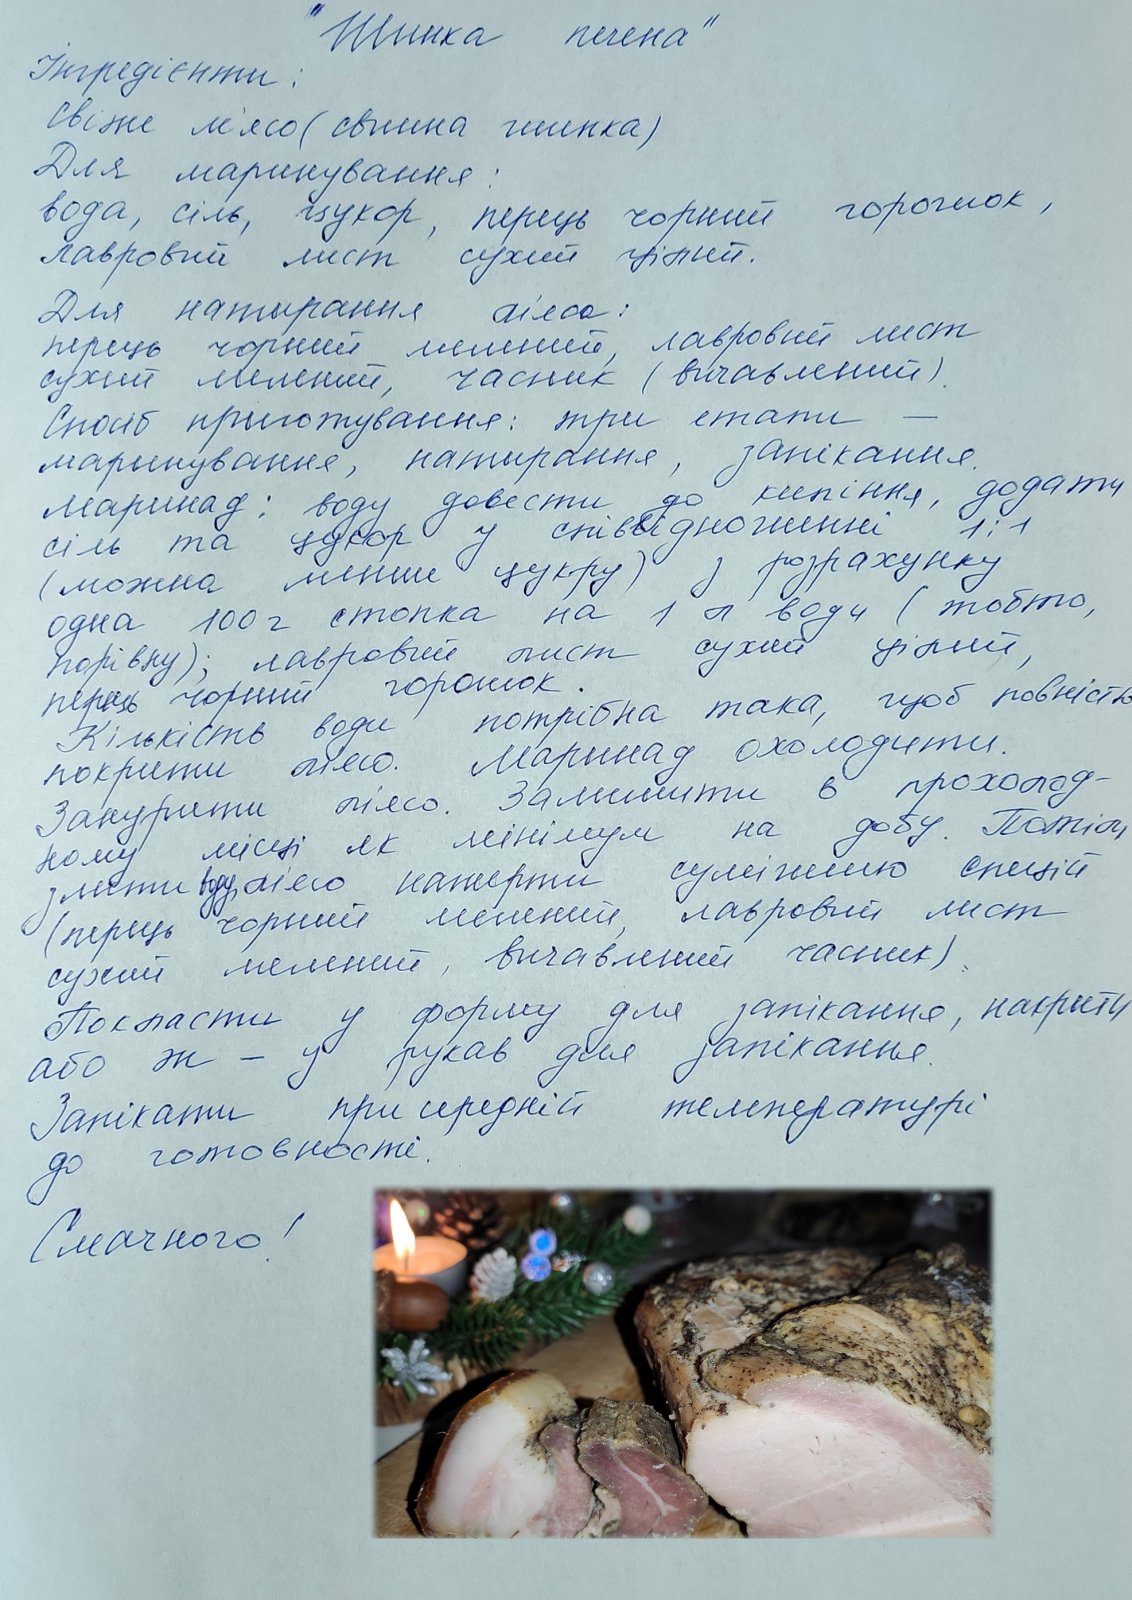 "Шинка печена"
Інгредієнти:
Свіже м'ясо (свинна шинка)
Для маринування:
вода, сіль, цукор, перець чорний горошок,
лавровий лист сухий цілий.
Для натирання м'яса:
перець чорний мелений, лавровий лист
сухий мелений, часник (вичавлений).
Спосіб приготування: три етапи –
маринування, натирання, запікання.
Маринад: воду довести до кипіння, додати
сіль та цукор у співвідношенні 1:1
(можна менше цукру) з розрахунку
одна 100г стопка на 1 л води (тобто,
порівну); лавровий лист сухий цілий,
перець чорний горошок.
Кількість води потрібна така, щоб повністю
покрити м'ясо. Маринад охолодити.
Занурити м'ясо. Залишити в прохолод-
ному місці як мінімум на добу. Потім
злити воду, м'ясо натерти сумішшю спецій
(перець чорний мелений, лавровий лист
сухий мелений, вичавлений часник).
Покласти у форму для запікання, накрити
або ж – у рукав для запікання.
Запікати при середній температурі
до готовності.
Смачного!